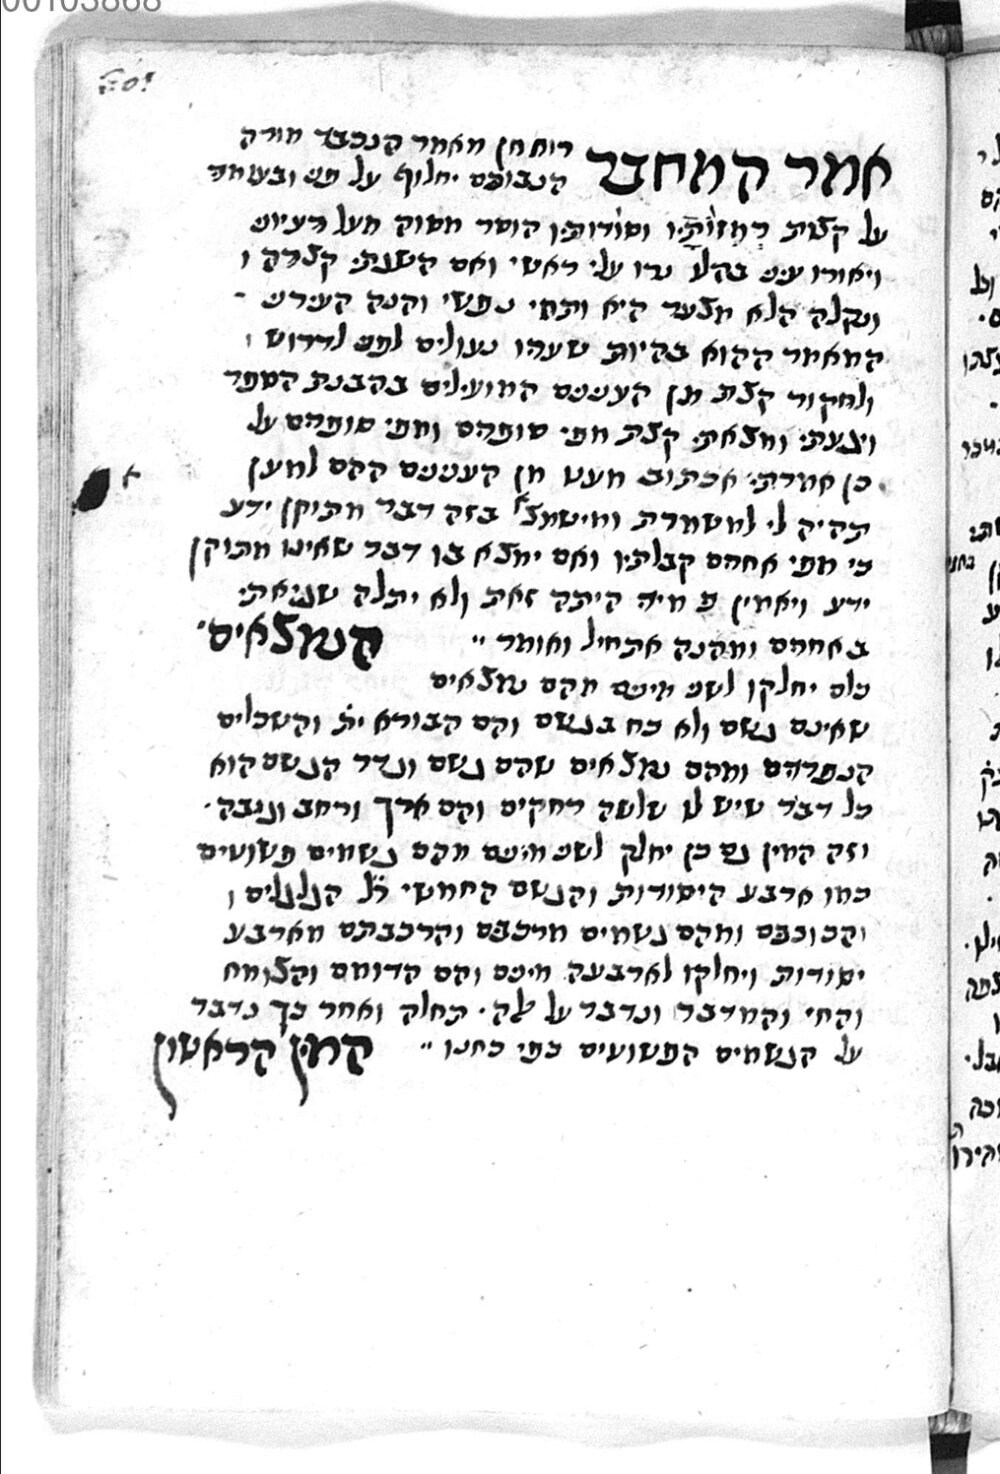 אמר המחבר רוח חן מאמר הנכבד מורה
הנבוכים יחלוף על פני ובעמדי
על קצת רמזותיו וסודותיו הוסר מסוה מעל רעיוני
ויאורו עיני בהלו נרו עלי ראשי ואם השגתי קצרה ו
ונקלה הלא מצער היא ותחי נפשי והנה הענין
המאמר ההוא בהיות שערו נעולים לפני לדרוש
ולחקור קצת מן הענינים המועילים בהבנת הספר
ויגעתי ומצאתי קצת מפי סופרים ומפי ספרים על
כן אמרתי אכתוב מעט מן הענינים ההם למען
תהיה לי למשמרת ומי שמצא בזה דבר מתוקן ידע
כי מפי אחרים קבלתיו ואם ימצא בו דבר שאינו מתוקן
ידע ויאמין כי ממני היתה זאת ולא יתלה שגיאתי
באחרים ומהנה אתחיל ואומר הנמצאים
כלם יחלקו לשני מינים מהם נמצאים
שאינם גשם ולא כח בגשם והם הבורא ית' והשכלים
הנפרדים ומהם נמצאים שהם גשם וגדר הגשם הוא
כל דבר שיש לו שלשה רחקים והם ארך ורחב וגובה
וזה המין גם כן יחלק לשני מינים מהם גשמים פשוטים
כמו ארבע היסודות והגשם החמשי ר"ל הגלגלים ו
והכוכבים ומהם גשמים מורכבים והרכבתם מארבע
יסודות ויחלקו לארבעה מינים והם הדומם והצומח
והחי והמדבר ונדבר על אלה תחלה ואחר כך נדבר
על הגשמים הפשוטים כפי כחנו המין הראשון